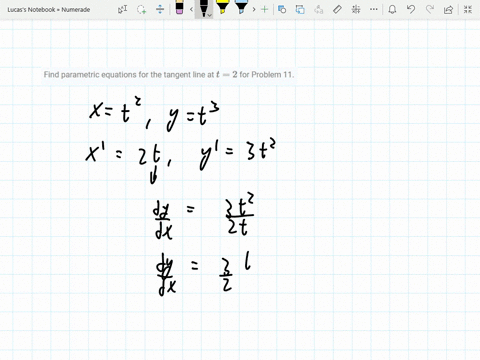 Lucas's Notebook + Numerade
Find parametric equations for the tangent line at t = 2 for Problem 11.
x = t², y = t³
x' = 2t, y' = 3t²
dy/dx = 3t²/2t
dy/dx = 3/2